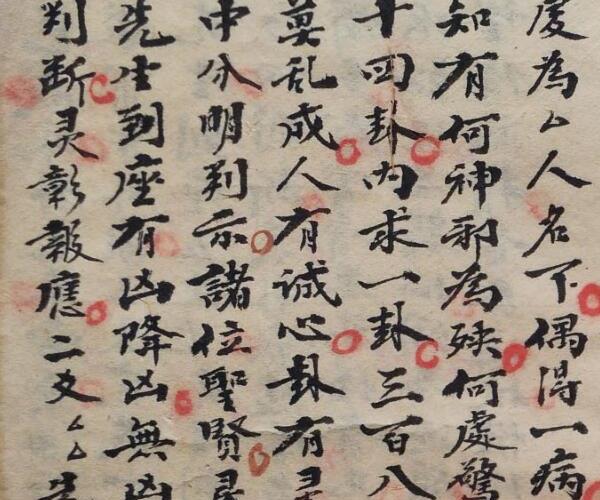 為厶人名下偶得一病
知有何神邪為殃何處驚
十四卦内求一卦三百八
莫乱成人有诚心卦有灵
中分明判示諸位聖賢
先生到座有凶降凶無凶
判断灵彰報應二爻厶厶